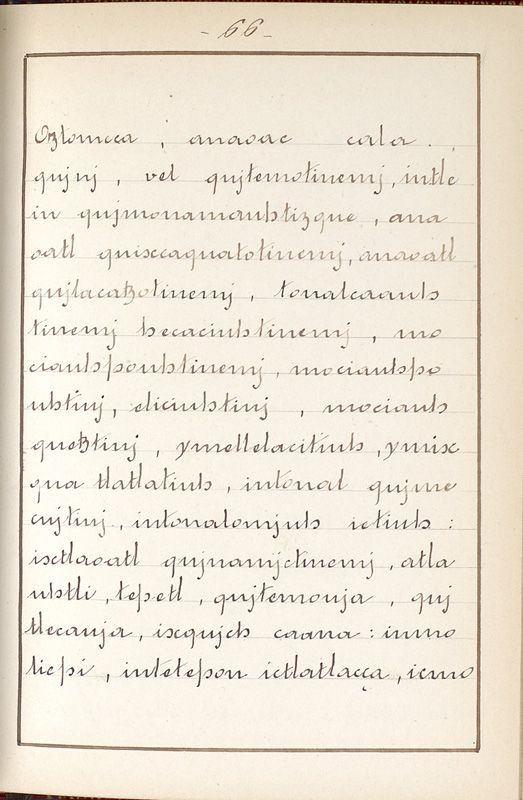 - 66 -
Oztomeca, anaoac cala.,
qujnj, vel qujtemotinemj, intle
in qujmonamaubtizque, ana
oatl quixcaquatotinemj, anaoatl
qujlacatzotinemj, tonalcaaub
tinemj becaciubtinemj, mo
ciaubpoubtinemj, mociaubpo
ubtinj, eliciubtinj, mociaub
quetztinj, ymellelacitiub, ymix
qua tlatlatiub, intonal qujme
cujtinj, intonalomjub ictiub:
ixtlaoatl qujnamjctinemj, atla
ubtli, tepetl, qujtemouja, quj
tlecauja, ixqujcb caana: inmo
ticpi, intetepon ictlatlacça, icmo